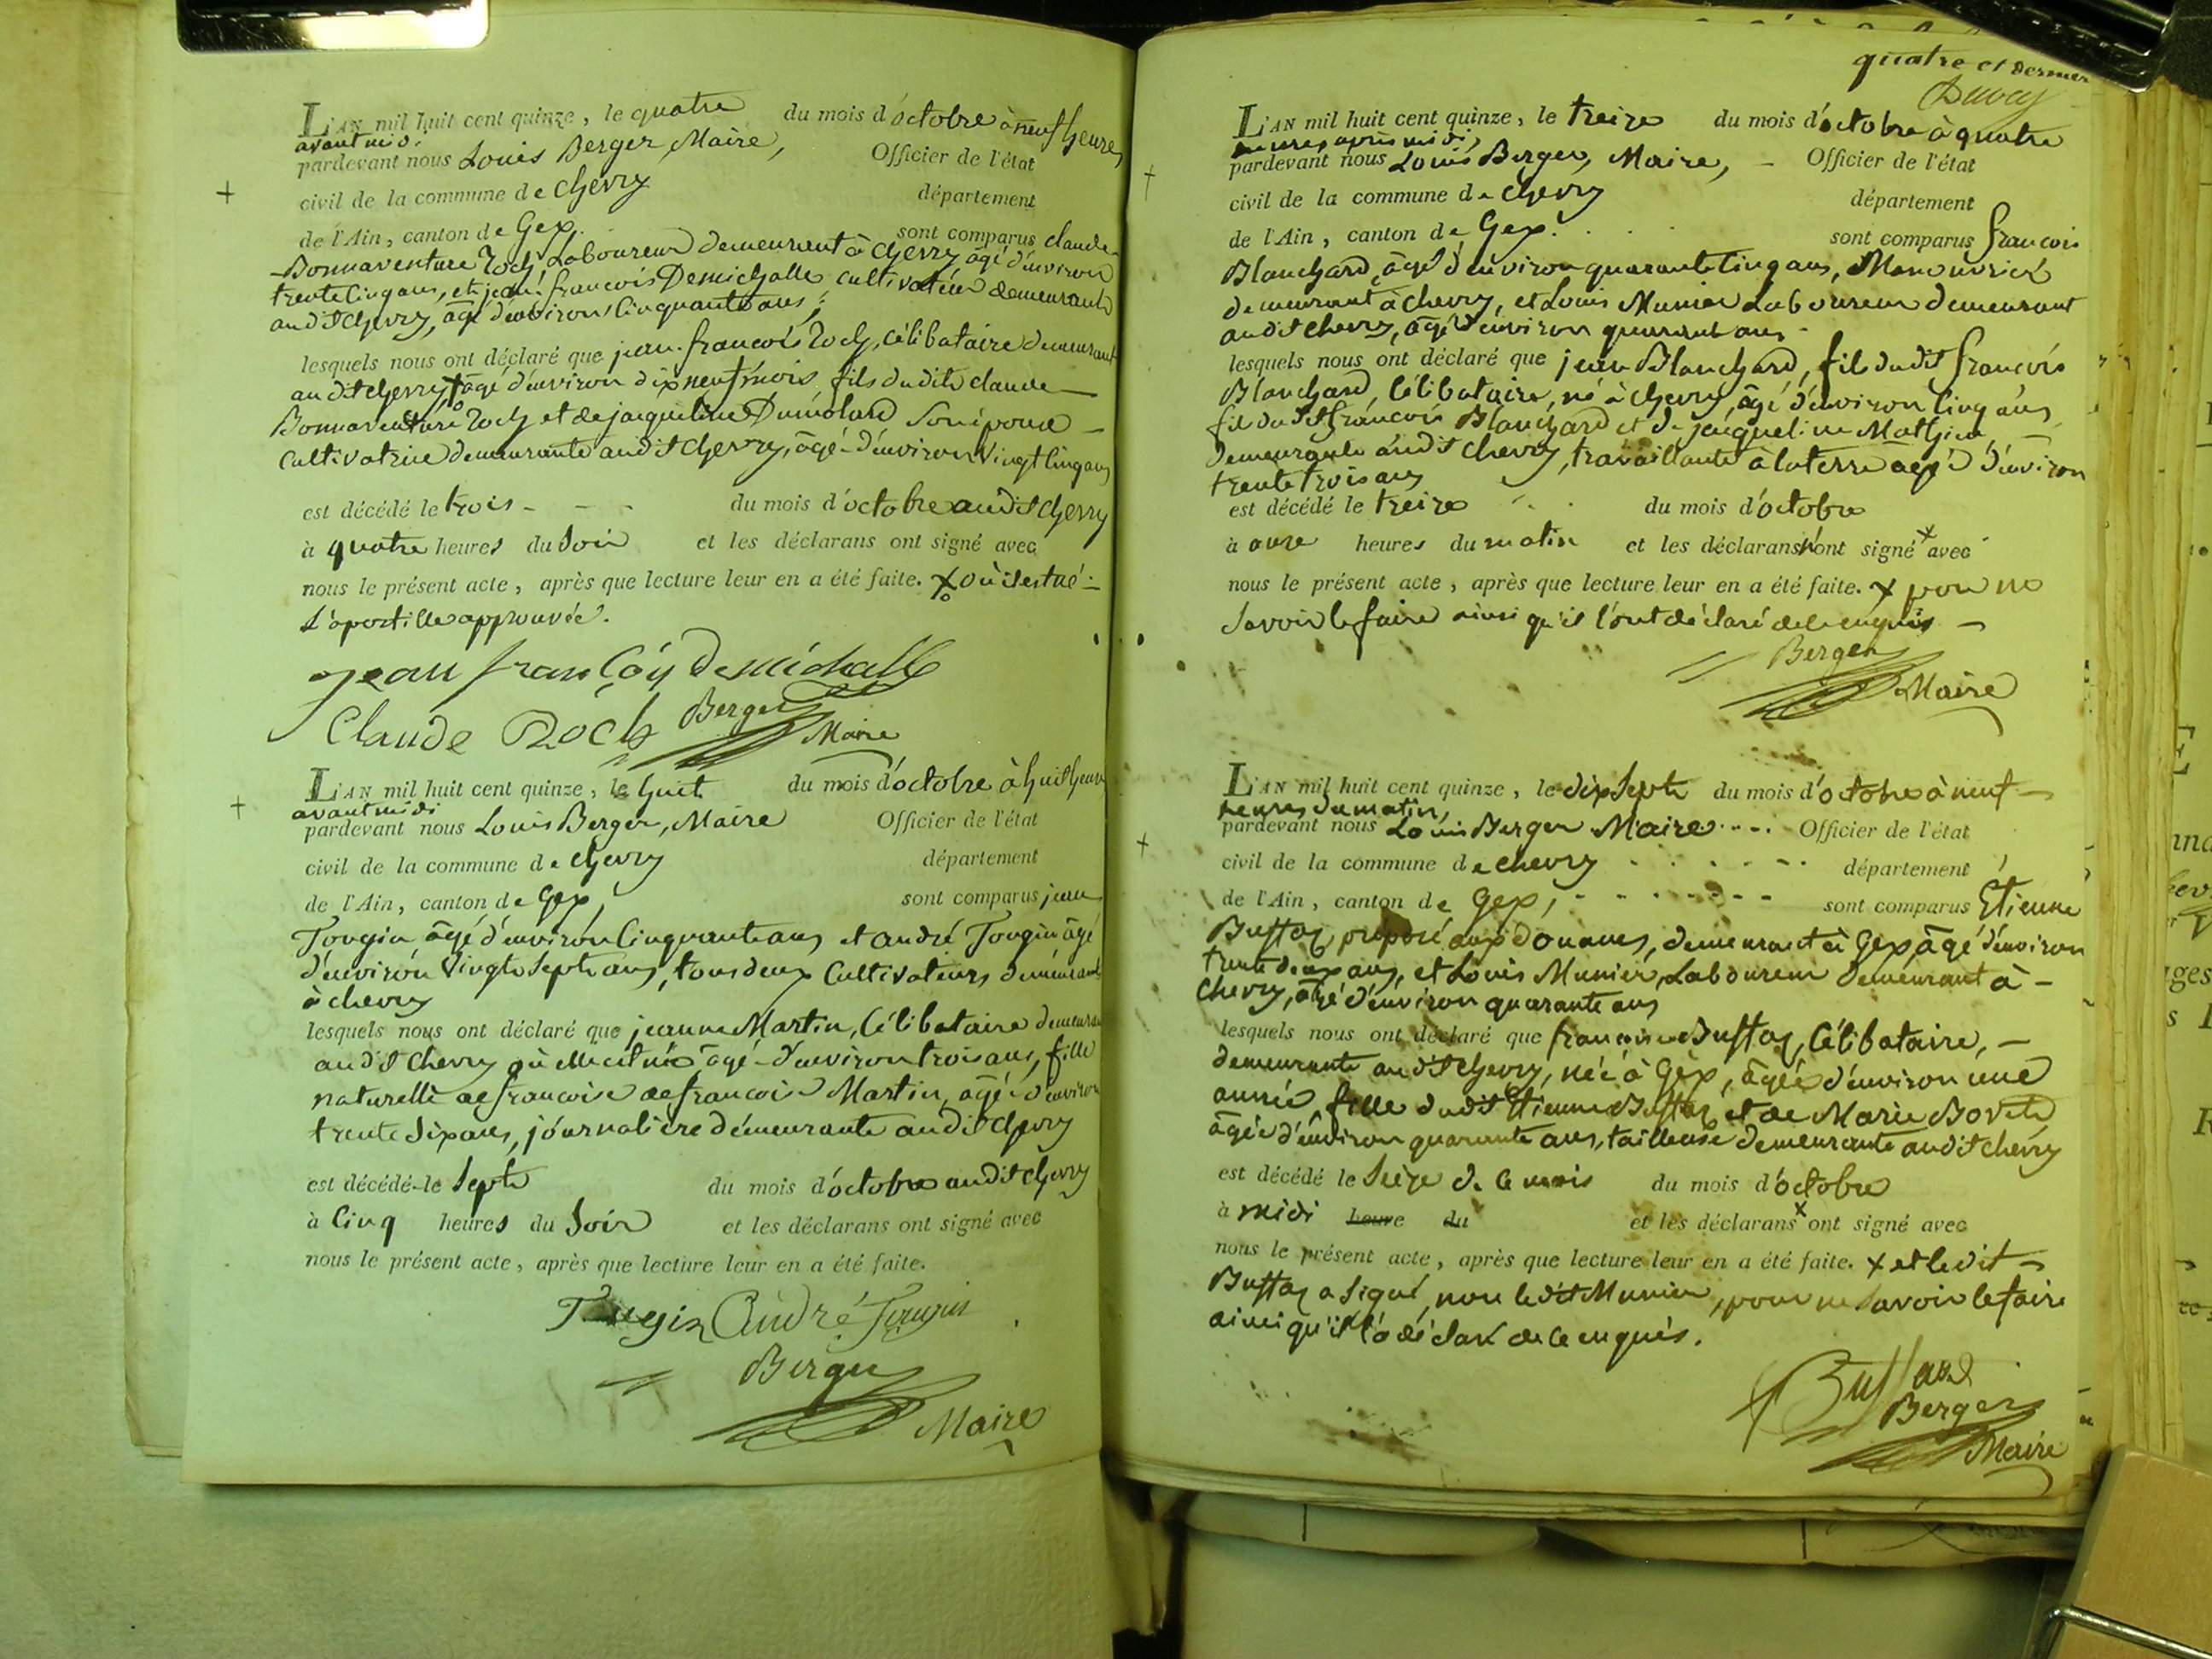 L'AN mil huit cent quinze, le quatre du mois d'octobre à neuf heures
avant midi
pardevant nous Louis Berger, Maire, Officier de l'état
civil de la commune de chevry département
de l'Ain, canton de Gex. sont comparus claude
Bonnaventure Roch, Laboureur demeurant à chevry âgé d'environ
trente cinq ans, et jean francois Demichalle cultivateur demeurant
audit chevry, âgé d'environ cinquante ans;
lesquels nous ont déclaré que jean francois Roch, célibataire demeurant
audit chevry + âgé d'environ dix neuf mois, fils dudit claude
Bonnaventure Roch et de jacqueline Dumolard son épouse
cultivatrice demeurante audit chevry, âgé d'environ vingt cinq ans
est décédé le trois du mois d'octobre audit chevry
à quatre heures du soir et les déclarans ont signé avec
nous le présent acte, après que lecture leur en a été faite. + où il est né
L'apostille approuvée.
jean francoy Demichalle
Claude Roch Berger
Maire
L'AN mil huit cent quinze, le huit du mois d'octobre à huit heures
avant midi
pardevant nous Louis Berger, Maire Officier de l'état
civil de la commune de chevry département
de l'Ain, canton de Gex, sont comparus jean
Tougin âgé d'environ cinquante ans et andré Tougin âgé
d'environ vingt sept ans, tous deux cultivateurs demeurant
à chevry
lesquels nous ont déclaré que jeanne Martin, célibataire demeurant
audit chevry où elle est née âgé d'environ trois ans, fille
naturelle de francoise de francoise Martin, âgée d'environ
trente six ans, journalière demeurante audit chevry
est décédé le sept du mois d'octobre audit chevry
à cinq heures du soir et les déclarans ont signé avec
nous le présent acte, après que lecture leur en a été faite.
Tougin André Tougin
Berger
Maire
quatre et dernier
L'AN mil huit cent quinze, le treize du mois d'octobre à quatre
heures après midi,
pardevant nous Louis Berger, Maire, Officier de l'état
civil de la commune de chevry département
de l'Ain, canton de Gex. sont comparus francois
Blanchard, âgé d'environ quarante cinq ans, Manouvrier
demeurant à chevry, et Louis Munier Laboureur demeurant
audit chevry, âgé d'environ quarante ans
lesquels nous ont déclaré que jean Blanchard, fils dudit francois
Blanchard, célibataire, né à chevry âgé d'environ cinq ans
fils dudit francois Blanchard et de jacqueline Mathieu
demeurante audit chevry, travaillante à la terre agé d'environ
trente trois ans
est décédé le treize du mois d'octobre
à onze heures du matin et les déclarans n'ont signé + avec
nous le présent acte, après que lecture leur en a été faite. + pour ne
savoir le faire ainsi qu'il l'ont déclaré de ce enquis
Berger
Maire
L'AN mil huit cent quinze, le dix sept du mois d'octobre à neuf
heures du matin,
pardevant nous Louis Berger Maire Officier de l'état
civil de la commune de chevry département
de l'Ain, canton de Gex, sont comparus Etienne
Buffaz préposé aux douanes, demeurant à Gex, âgé d'environ
trente deux ans, et Louis Munier, Laboureur demeurant à
chevry, âgé d'environ quarante ans
lesquels nous ont déclaré que francoise Buffaz, célibataire,
demeurante audit chevry, née à Gex, âgée d'environ une
année, fille dudit Etienne Buffaz et de Marie Bovet
âgée d'environ quarante ans, tailleuse demeurante audit chevry
est décédé le seize de ce mois du mois d'octobre
à midi heure du et les déclarans + ont signé avec
nous le présent acte, après que lecture leur en a été faite. + et ledit
Buffaz a signé, non ledit Munier, pour ne savoir le faire
ainsi qu'il l'a déclaré de ce enquis.
Buffaz
Berger
Maire